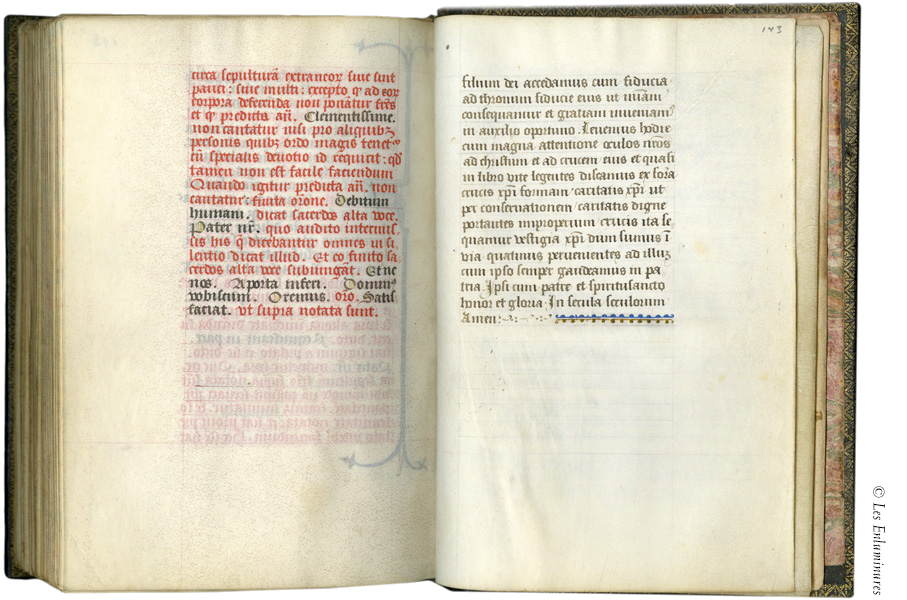 circa sepulturā extraneor siue sint
pauci : siue multi : excepto qͥ ad eor
corpora deferenda non ponātur frēs
et qͥ predicta añ. Clementissime.
non cantatur nisi pro aliquibꝫ
personis quibꝫ ordo magis tenetᷣ
cū specialis deuotio id requirit : qd̄
tamen non est facile faciendum
Quando igitur predicta añ. non
cantatur : finita orōne. Debitum
humani. dicat sacerdos alta voce.
Pater nr̄. quo audito infernis.
sis his q̄ dicebantur omnes in si
lentio dicat illud. Et eo finito sa
cerdos alta voce subiungāt. Et ne
nos. A porta inferi. Dominꝰ
vobiscum. Oremus. orō. Satis
faciat. vt supra notata sunt.
143
filium dei accedamus cum fiducia
ad thronum fiducie eius ut mīam
consequamur et gratiam inueniamꝰ
in auxilio oportuno. Leuemus hodie
cum magna attentione oculos nr̄os
ad christum et ad crucem eius et quasi
in libro vite legentes discamus ex
crucis xp̄i formam caritatis xp̄i ut
per conseruationem caritatis digne
portantes improperium crucis ita se
quamur vestigia xp̄i dum sumus ī
via quatinus peruenientes ad illuꝫ
cum ipso semper gaudeamus in pa
tria. Ipso cum patre et spiritusancto
honor et gloria. In secula seculorum
Amen :
© Les Enluminures